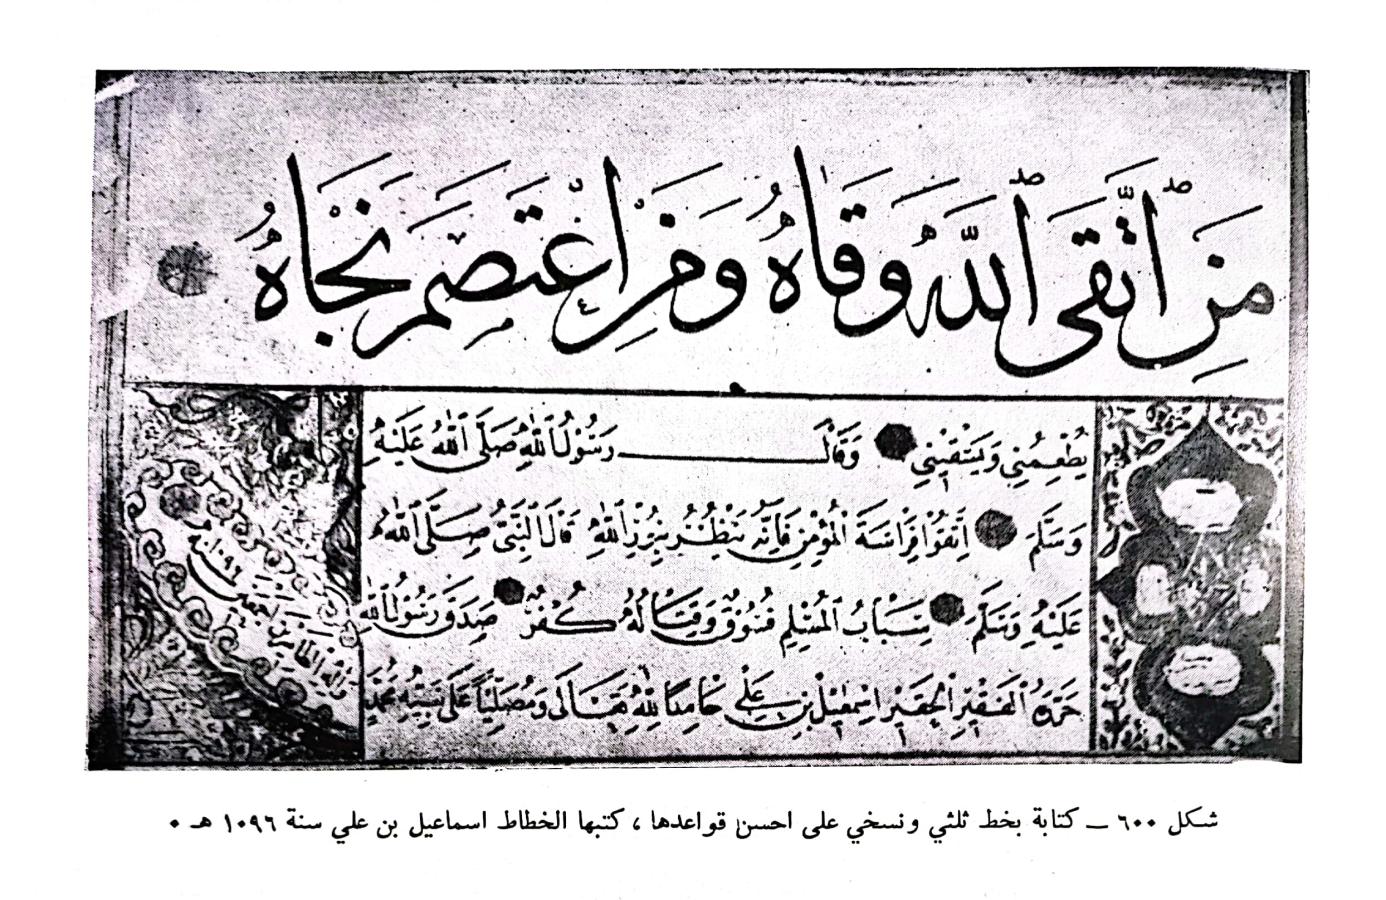 مَنِ اتَّقَى اللّٰهَ وَقَاهُ وَمَنِ اعْتَصَمَ نَجَاهُ
يُطْعِمُنِي وَيَسْقِينِي وَقَالَ رَسُولُ اللّٰهِ صَلَّى اللّٰهُ عَلَيْهِ
وَسَلَّمَ اِتَّقُوا فِرَاسَةَ الْمُؤْمِنِ فَاِنَّهُ يَنْظُرُ بِنُورِ اللّٰهِ قَالَ النَّبِيُّ صَلَّى اللّٰهُ
عَلَيْهِ وَسَلَّمَ سِبَابُ الْمُسْلِمِ فُسُوقٌ وَقِتَالُهُ كُفْرٌ صَدَقَ رَسُولُ اللّٰهِ
حَرَّرَهُ الْفَقِيرُ الْحَقِيرُ اِسْمٰعِيلُ بْنُ عَلِي حَامِدًا لِلّٰهِ تَعَالَى وَمُصَلِّيًا عَلَى نَبِيِّهِ مُحَمَّدٍ
وآله الطاهرين اجمعين
١٠٩٦
شكل ٦٠٠ ــ كتابة بخط ثلثي ونسخي على احسن قواعدها ، كتبها الخطاط اسماعيل بن علي سنة ١٠٩٦ هـ ٠